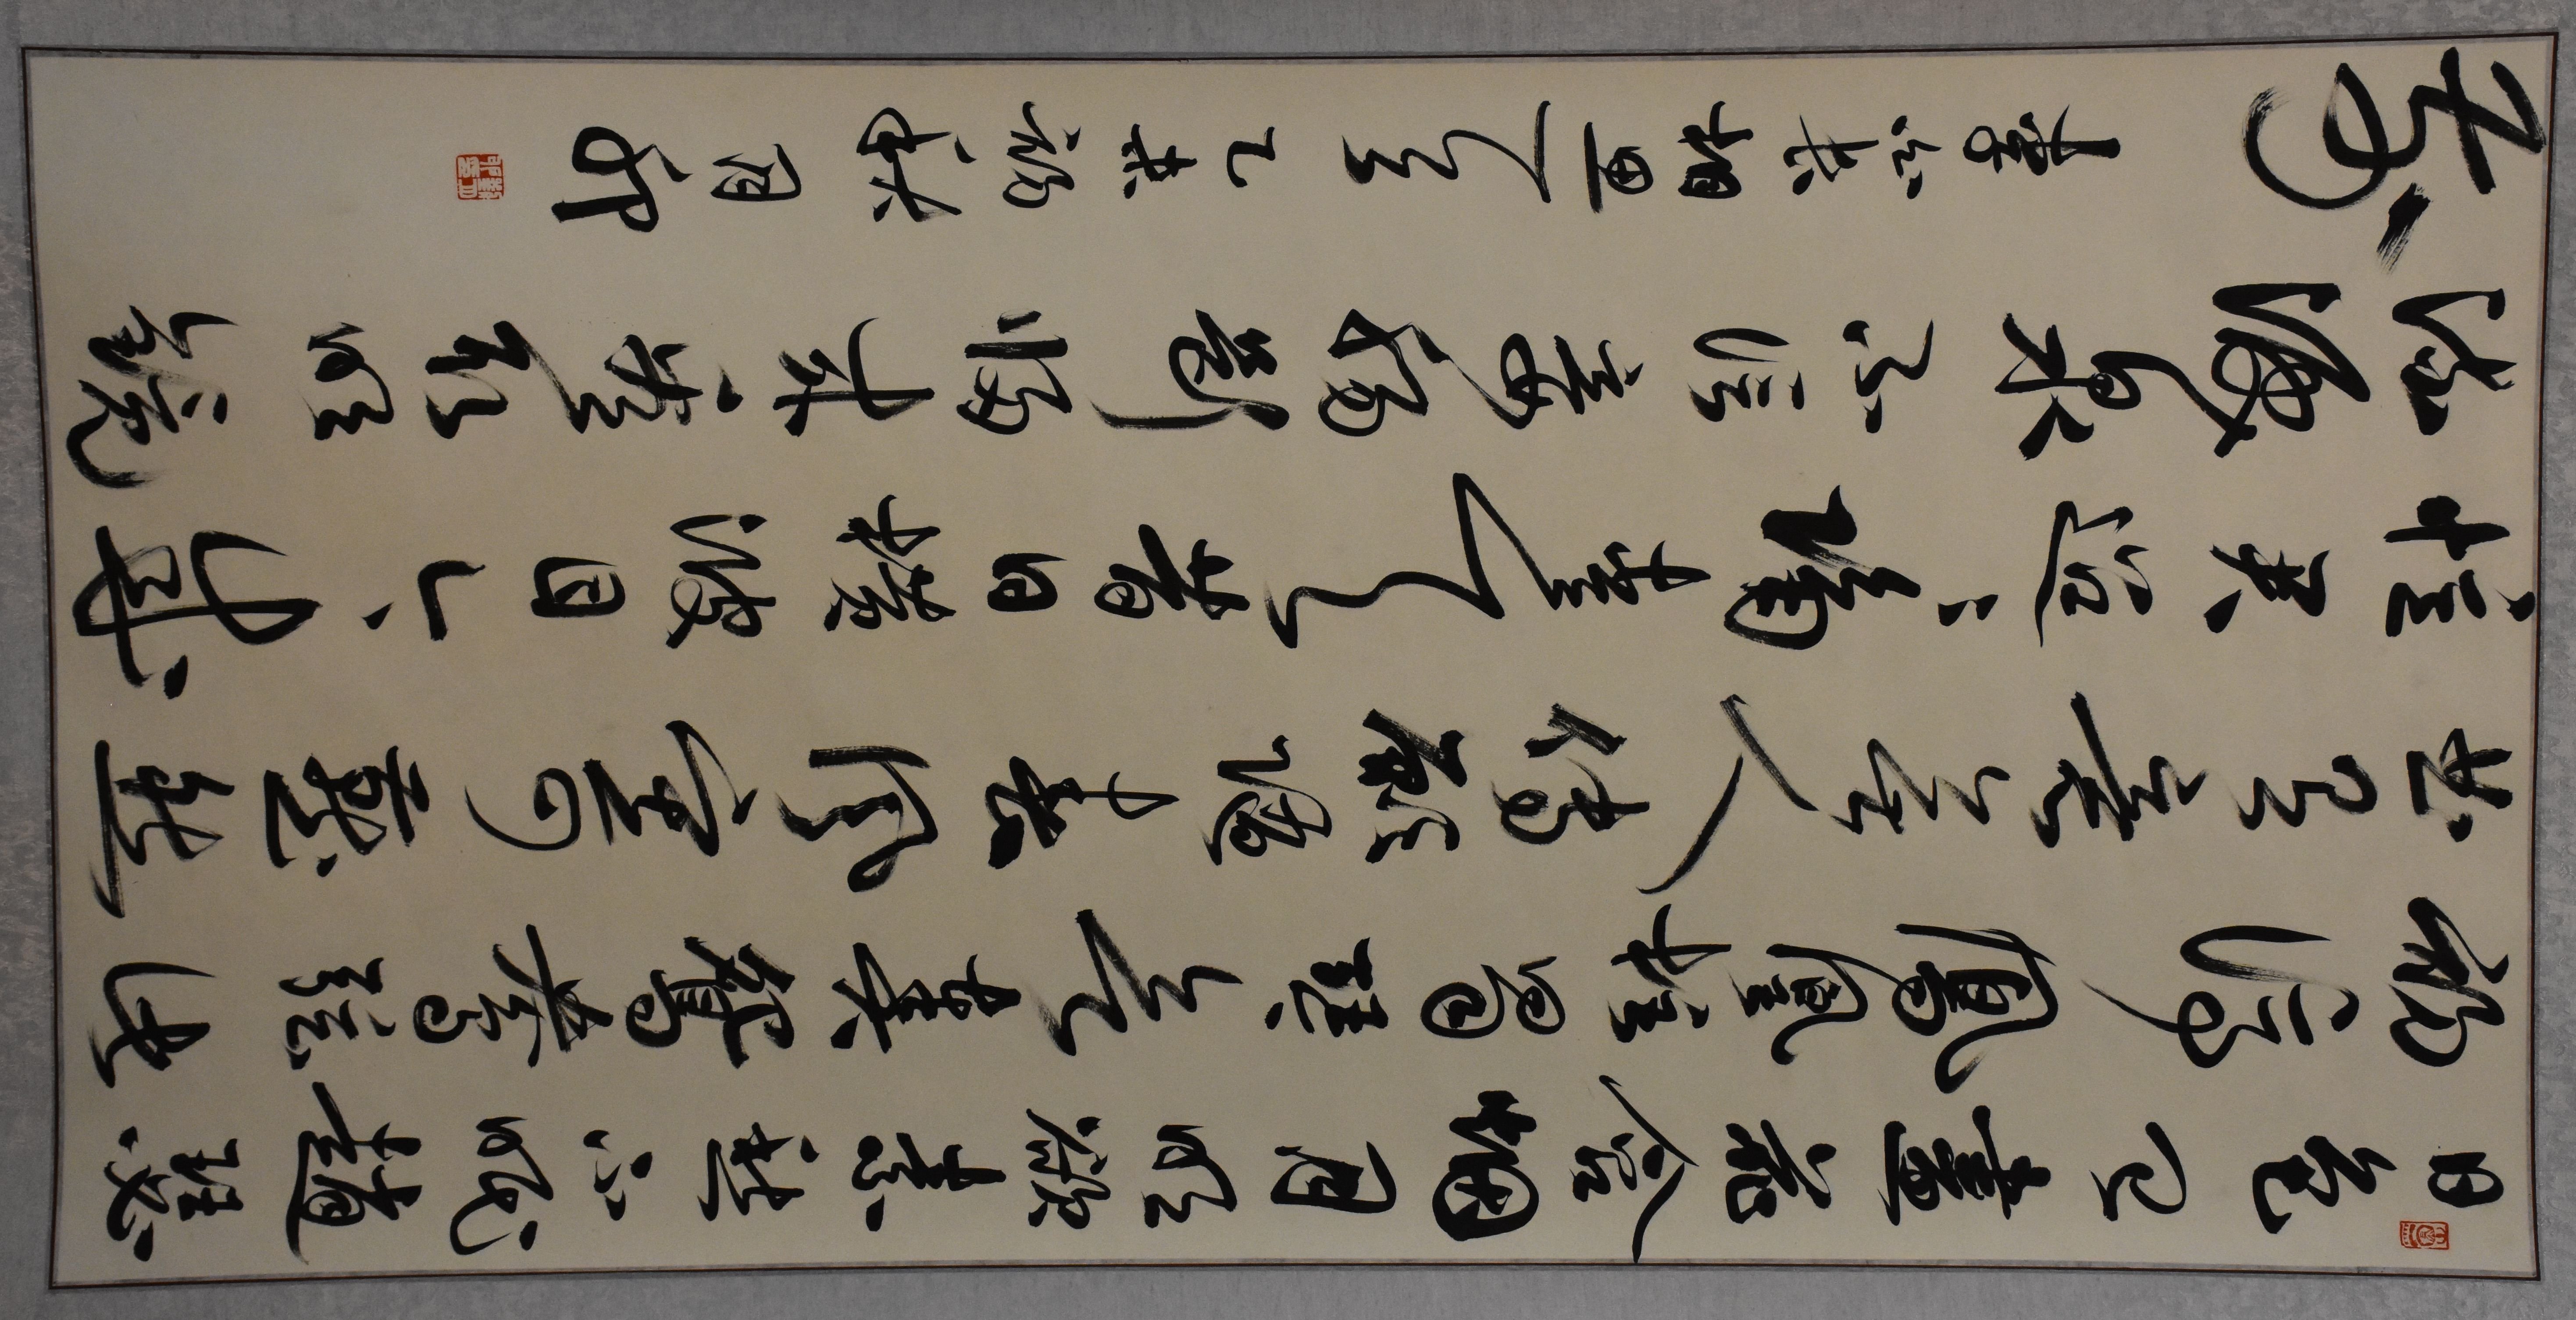 日色已盡花含煙月明欲素愁不眠趙瑟
初停鳳凰柱蜀琴欲奏鴛鴦絃此
曲有意無人傳願隨春風寄燕然
憶君迢迢隔青天昔日橫波目今成
流淚泉不信妾腸斷歸來看取明鏡
前